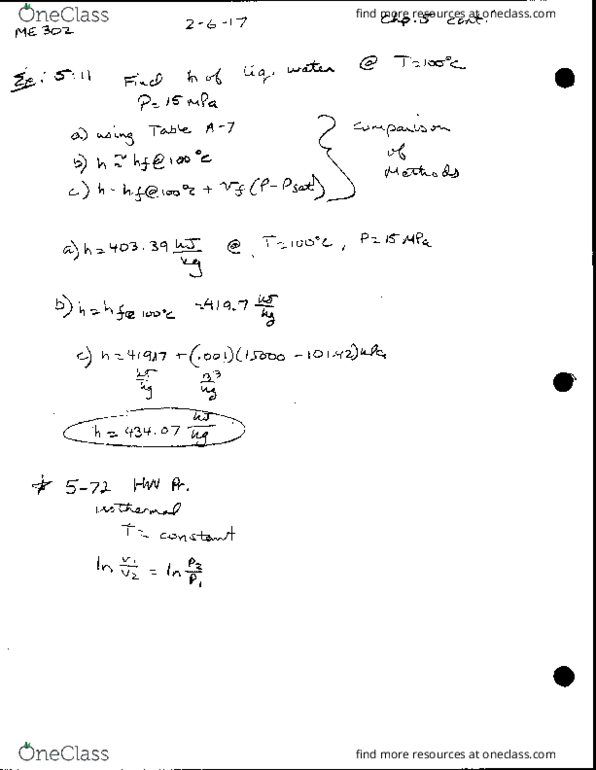 OneClass
find more resources at oneclass.com
ME 302
2-6-17
Chp. 5 cont.
Ex: 5.11 Find h of liq. water @ T=100°C
P=15 MPa
a) using Table A-7
b) h ≈ hf@100°C
c) h - hf@100°C + Vf (P-Psat)
comparison
of
Methods
a) h = 403.39 kJ/kg @ T=100°C, P=15 MPa
b) h = hf@100°C = 419.7 kJ/kg
c) h = 419.17 + (.001)(15000 - 101.42) kPa
kJ/kg m³/kg
h = 434.07 kJ/kg
* 5-72 HW Pr.
isothermal
T = constant
ln V1/V2 = ln P2/P1
OneClass
find more resources at oneclass.com